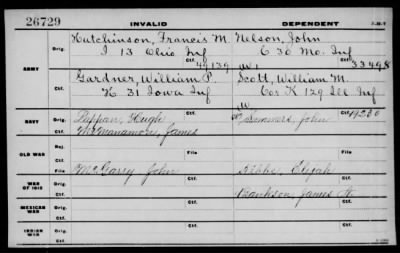 26729 INVALID DEPENDENT
ARMY Orig. Hutchinson, Francis M. Nelson, John
I 13 Ohio Inf C 30 Mo. Inf
Ctf. 49139 W 1 Ctf. 33498
Orig. Gardner, William P. Scott, William M.
K 31 Iowa Inf Cor K 129 Ill Inf
Ctf. W Ctf. 19260
NAVY Orig. Hugh Sommers, John
Ctf. McManamon, James
OLD WAR Rej.
Ctf. File File
WAR OF 1812 Orig. McGarry John Elijah
Ctf. James W.
MEXICAN WAR Orig.
Ctf.
INDIAN WAR Orig.
Ctf.